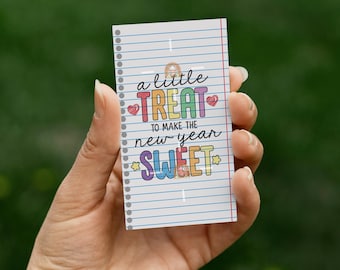 a little
TREAT
TO MAKE THE
new year
SWEET